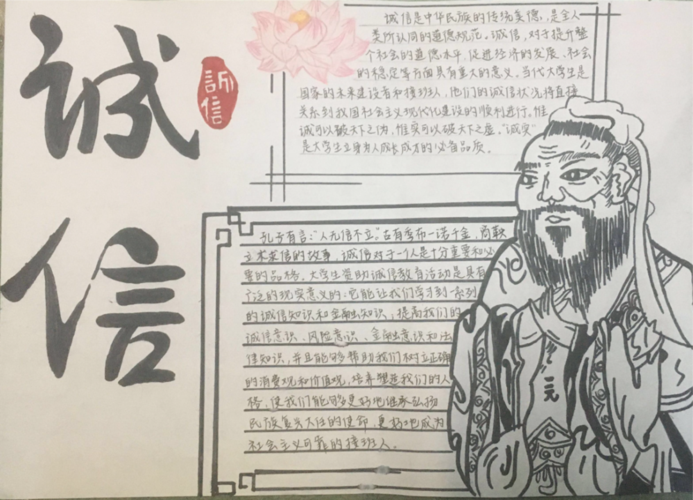 诚信
誠信
诚信是中华民族的传统美德,是全人
类所认同的道德规范。诚信,对于提升整
个社会的道德水平,促进经济的发展、社会
的稳定等方面具有重大的意义。当代大学生是
国家的未来建设者和接班人,他们的诚信状况将直接
关系到我国社会主义现代化建设的顺利进行。惟
诚可以破天下之伪,惟实可以破天下之虚。“诚实”
是大学生立身为人成长成才的必备品质。
孔子有言:“人无信不立。”古有季布一诺千金,商鞅
立木取信的故事,诚信对于一个人是十分重要和必
要的品格。大学生资助诚信教育活动是具有
广泛的现实意义的:它能让我们学习到一系列
的诚信知识和金融知识,提高我们的
诚信意识、风险意识、金融意识和法
律知识,并且能够帮助我们树立正确
的消费观和价值观,培养塑造我们的人
格,使我们能够更好地继承弘扬
民族复兴大任的使命,更好地成为
社会主义可靠的接班人。